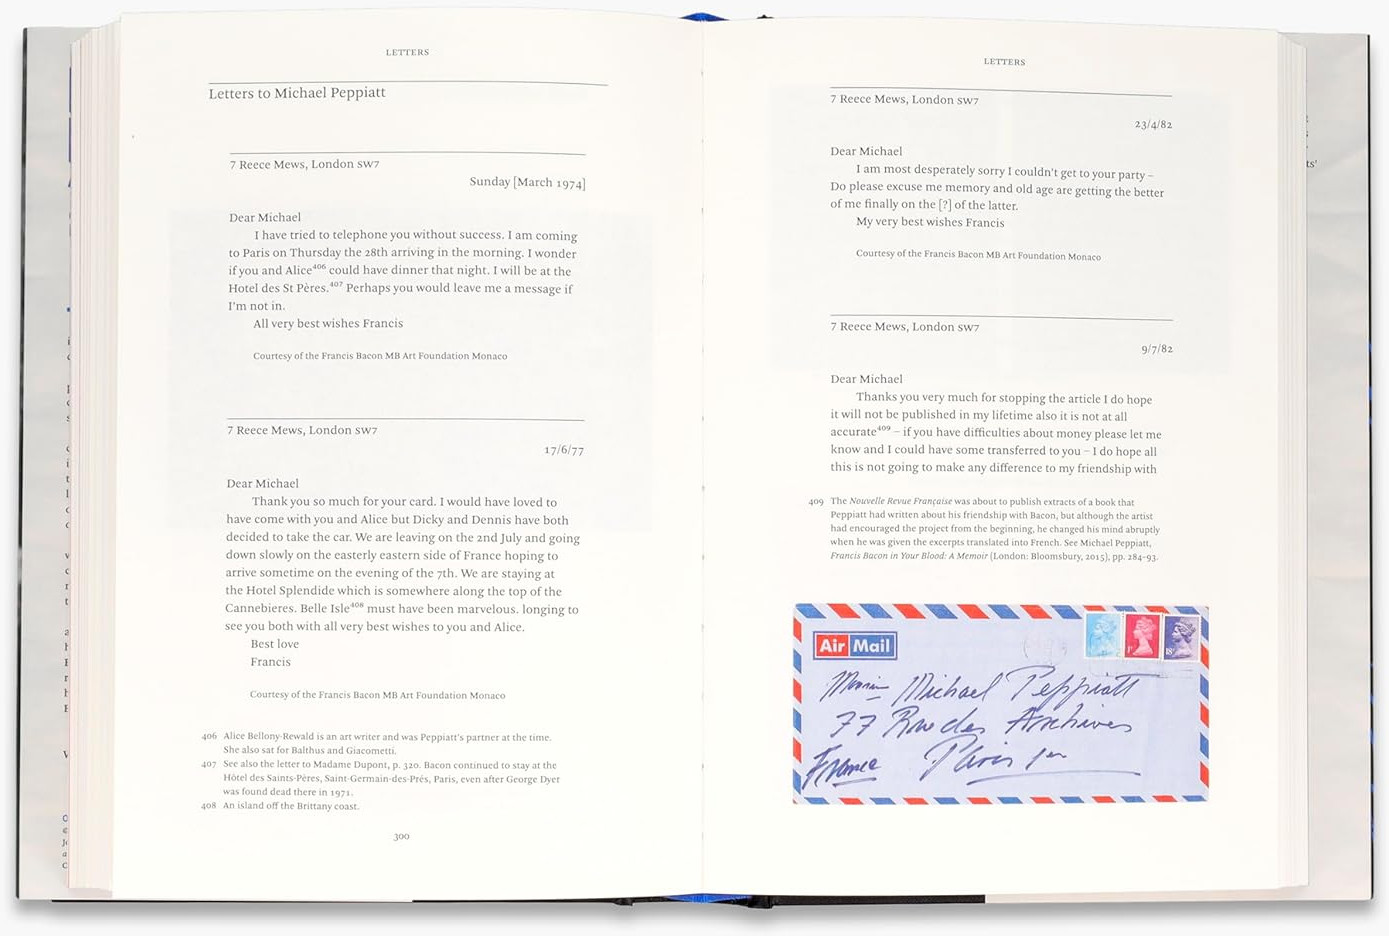 LETTERS
Letters to Michael Peppiatt
7 Reece Mews, London SW7
Sunday [March 1974]
Dear Michael
I have tried to telephone you without success. I am coming
to Paris on Thursday the 28th arriving in the morning. I wonder
if you and Alice406 could have dinner that night. I will be at the
Hotel des St Pères.407 Perhaps you would leave me a message if
I'm not in.
All very best wishes Francis
Courtesy of the Francis Bacon MB Art Foundation Monaco
7 Reece Mews, London SW7
17/6/77
Dear Michael
Thank you so much for your card. I would have loved to
have come with you and Alice but Dicky and Dennis have both
decided to take the car. We are leaving on the 2nd July and going
down slowly on the easterly eastern side of France hoping to
arrive sometime on the evening of the 7th. We are staying at
the Hotel Splendide which is somewhere along the top of the
Cannebieres. Belle Isle408 must have been marvelous. longing to
see you both with all very best wishes to you and Alice.
Best love
Francis
Courtesy of the Francis Bacon MB Art Foundation Monaco
406 Alice Bellony-Rewald is an art writer and was Peppiatt's partner at the time.
She also sat for Balthus and Giacometti.
407 See also the letter to Madame Dupont, p. 320. Bacon continued to stay at the
Hôtel des Saints-Pères, Saint-Germain-des-Prés, Paris, even after George Dyer
was found dead there in 1971.
408 An island off the Brittany coast.
300
LETTERS
7 Reece Mews, London SW7
23/4/82
Dear Michael
I am most desperately sorry I couldn't get to your party –
Do please excuse me memory and old age are getting the better
of me finally on the [?] of the latter.
My very best wishes Francis
Courtesy of the Francis Bacon MB Art Foundation Monaco
7 Reece Mews, London SW7
9/7/82
Dear Michael
Thanks you very much for stopping the article I do hope
it will not be published in my lifetime also it is not at all
accurate409 – if you have difficulties about money please let me
know and I could have some transferred to you – I do hope all
this is not going to make any difference to my friendship with
409 The Nouvelle Revue Française was about to publish extracts of a book that
Peppiatt had written about his friendship with Bacon, but although the artist
had encouraged the project from the beginning, he changed his mind abruptly
when he was given the excerpts translated into French. See Michael Peppiatt,
Francis Bacon in Your Blood: A Memoir (London: Bloomsbury, 2015), pp. 284-93.
Air Mail
1P
18P
Michael Peppiatt
77 Rue des Archives
France Paris 1er